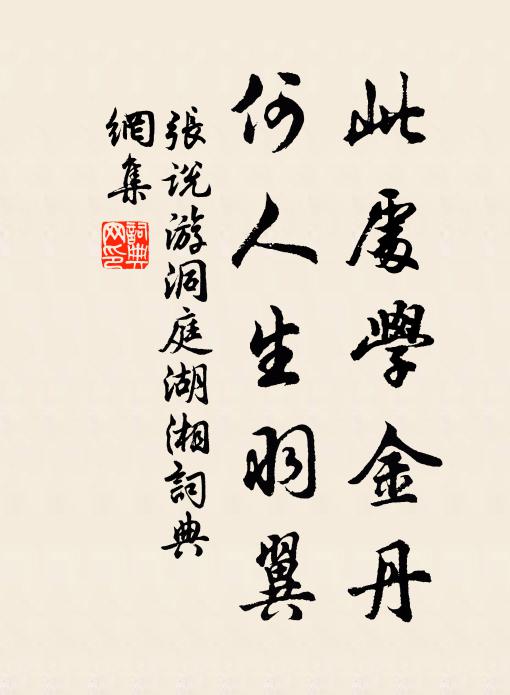 此處學金丹
何人生羽翼
張說游洞庭湖湘詞典
網集
詞典
网印